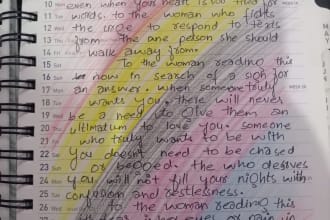 10 Mon even when your heart is too tired for
11 Tue words. to the woman who fights
12 Wed the urge to respond to texts
13 Thu from the one person she should
14 Fri walk away from.
15 Sat To the woman reading this
16 Sun now in search of a sign for
17 Mon an answer. when someone truly
18 Tue wants you, there will never
19 Wed be a need to give them an
20 Thu ultimatum to love you. someone
21 Fri who truly wants to be with
22 Sat you doesn't need to be chased
23 Sun or begged. the who deserves
24 Mon you will not fill your nights with
25 Tue confusion and restlessness.
26 Wed to the woman reading this
27 Thu eyes or pain in